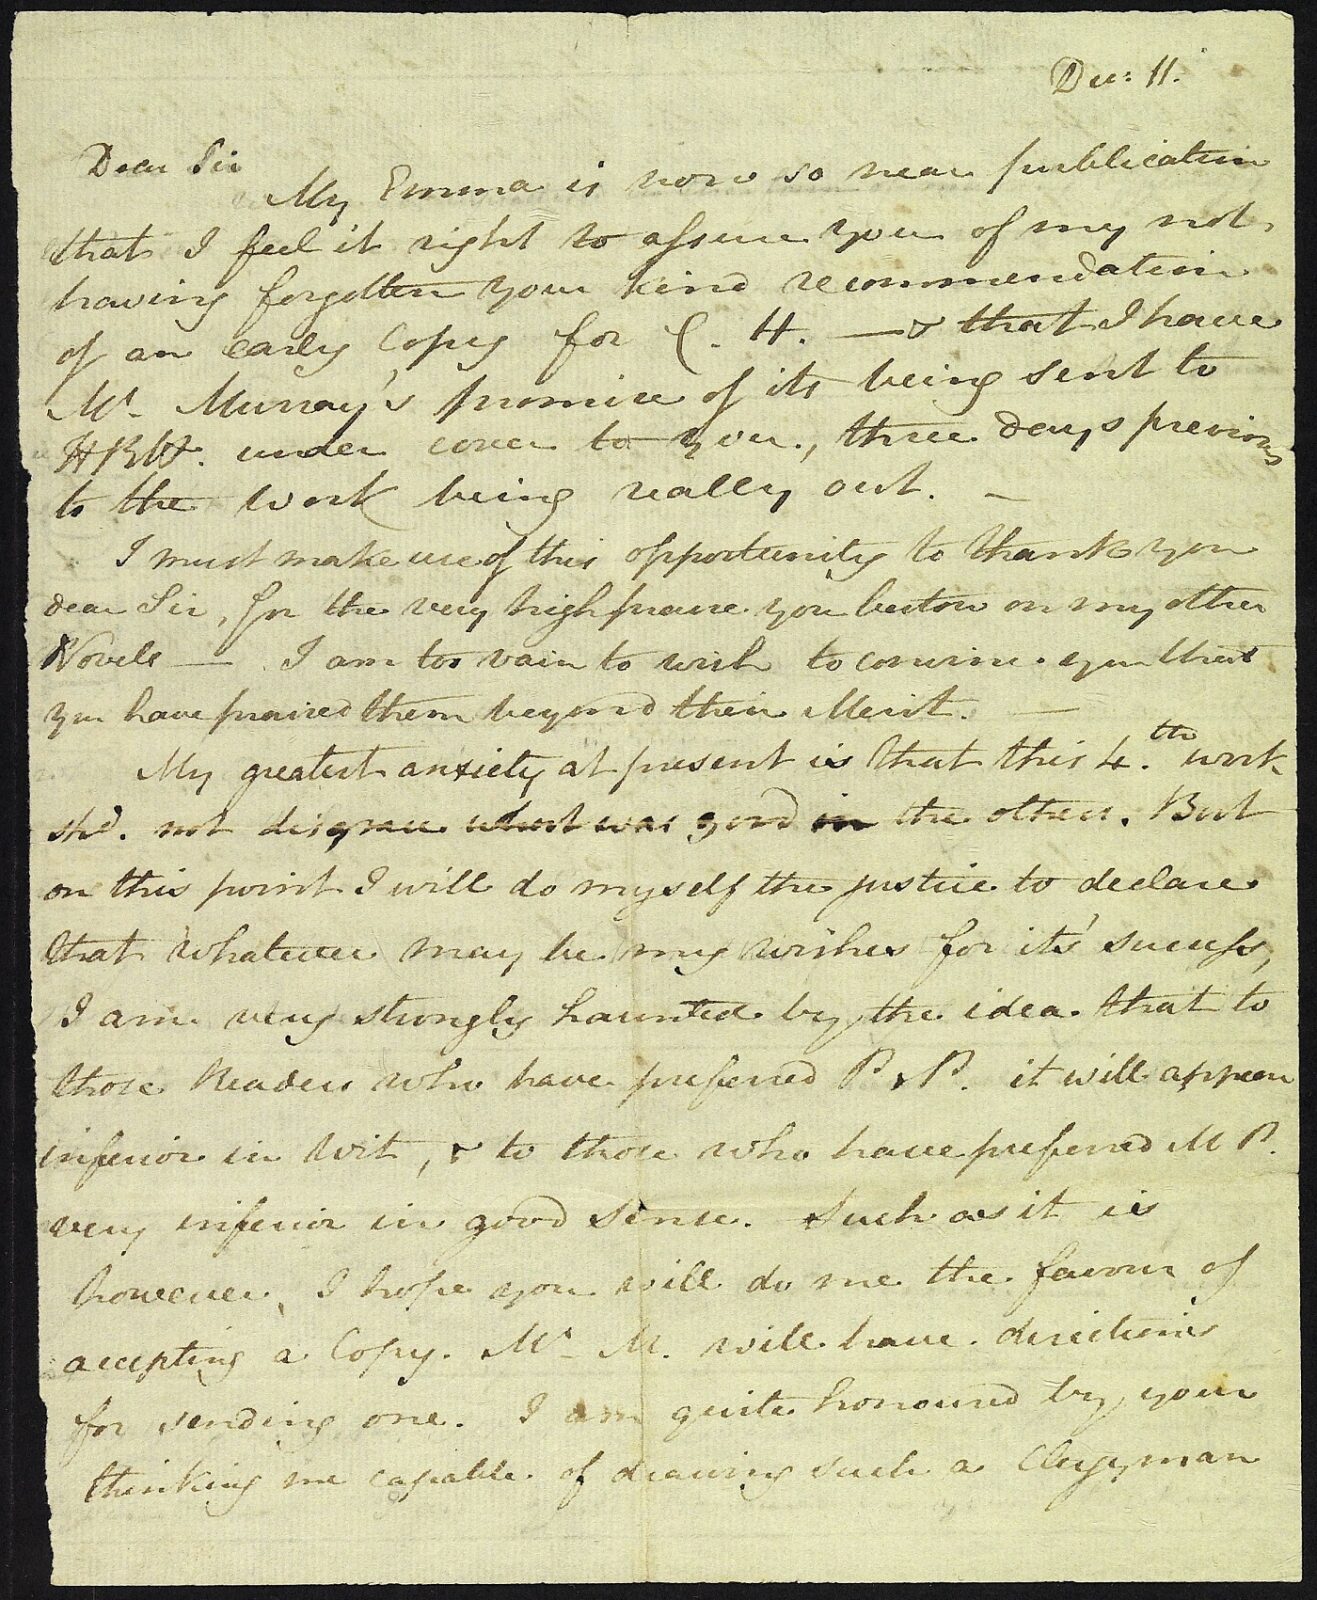 Dec: 11.
Dear Sir
My Emma is now so near publication
that I feel it right to assure you of my not
having forgotten your kind recommendation
of an early Copy for C. H. — & that I have
Mr. Murray's promise of its being sent to
HRH. under cover to you, three days previous
to the work being really out. —
I must make use of this opportunity to thank you
dear Sir, for the very high praise you bestow on my other
Novels — I am too vain to wish to convince you that
you have praised them beyond their Merit. —
My greatest anxiety at present is that this 4.th work
shd. not disgrace what was good in the others. But
on this point I will do myself the justice to declare
that whatever may be my wishes for its' success,
I am very strongly haunted by the idea that to
those Readers who have preferred P & P. it will appear
inferior in Wit, & to those who have preferred M P.
very inferior in good Sense. Such as it is
however, I hope you will do me the favour of
accepting a Copy. Mr. M. will have directions
for sending one. I am quite honoured by your
thinking me capable of drawing such a Clergyman